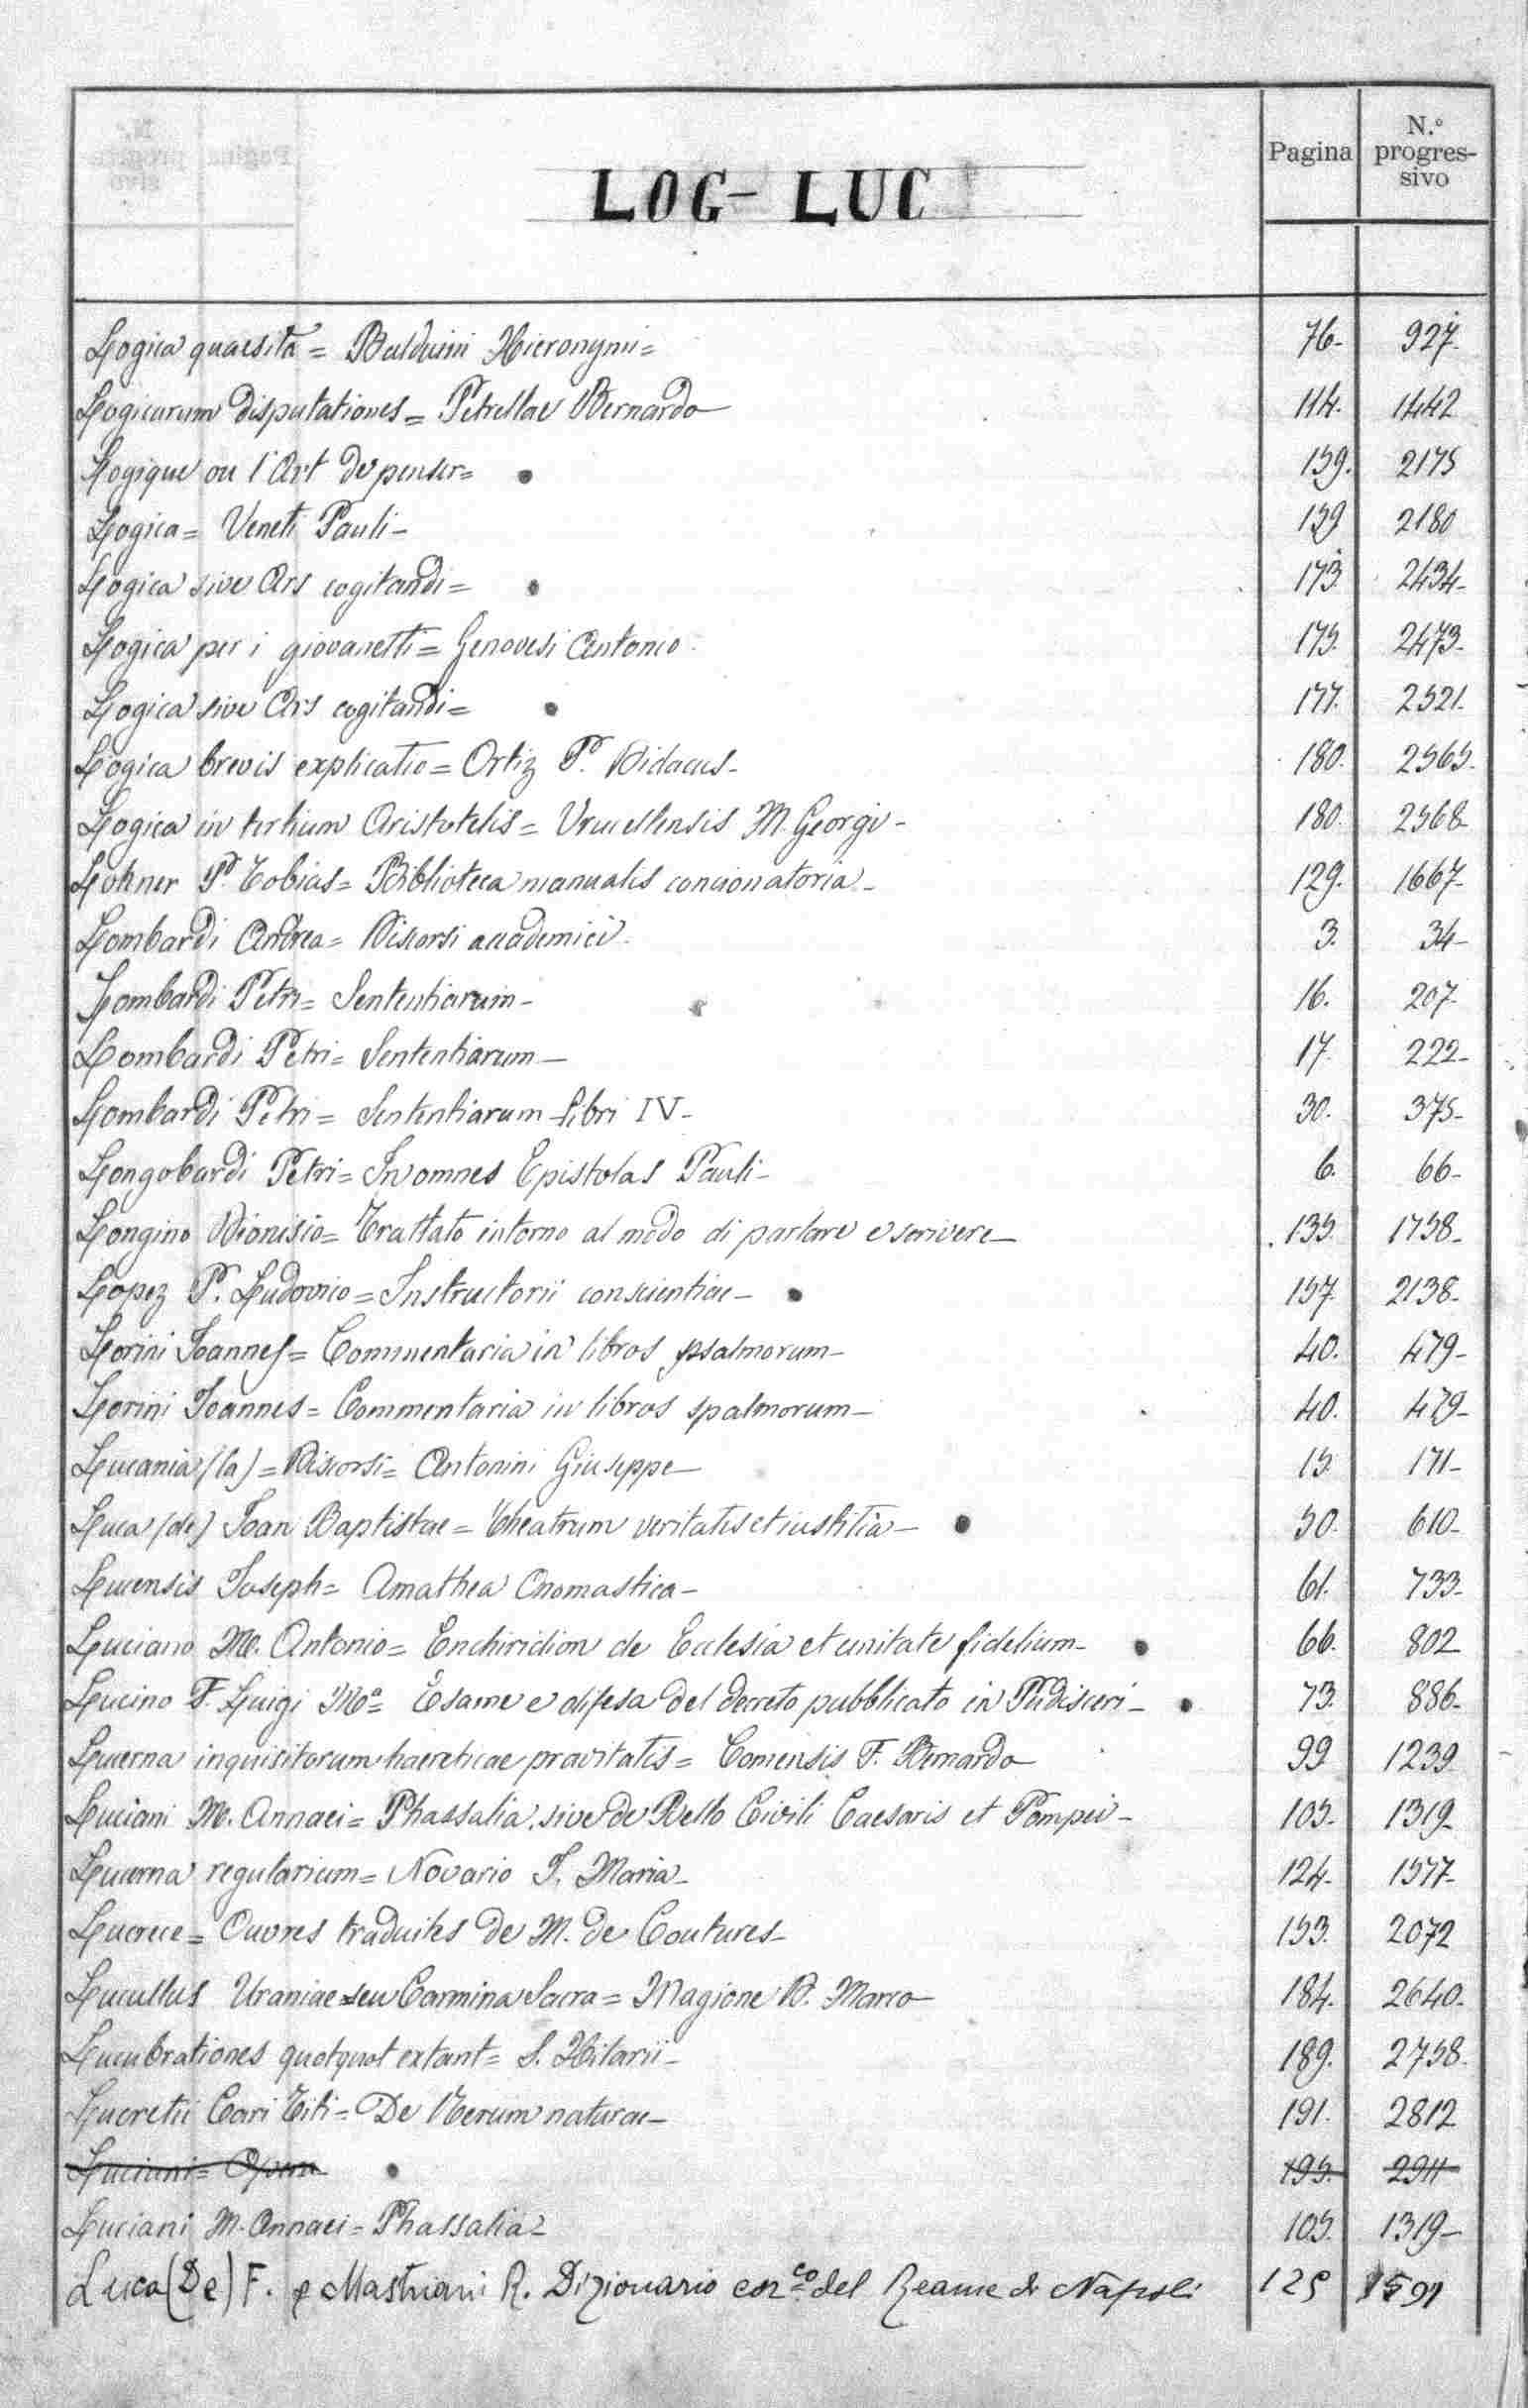 Pagina N.º progres-sivo
LOG - LUC
Logica quaesita = Balduini Hieronymi = 76- 927-
Logicarum disputationes = Petrellae Bernardo 114. 1442
Logique ou l'Art de penser = 159. 2175
Logica = Veneti Pauli - 159 2180
Logica sive Ars cogitandi = 173 2434-
Logica per i giovanetti = Genovesi Antonio 175. 2473-
Logica sive Ars cogitandi = 177. 2521.
Logica brevis explicatio = Ortiz P. Didacus - 180. 2565.
Logica in tertium Aristotelis = M. Georgi - 180. 2568-
Lohner P. Tobias = Biblioteca manualis concionatoria - 129. 1667-
Lombardi Andrea = Discorsi accademici 3. 34-
Lombardi Petri = Sententiarum - 16. 207-
Lombardi Petri = Sententiarum - 17. 222-
Lombardi Petri = Sententiarum - Libri IV - 30. 375-
Longobardi Petri = In omnes Epistolas Pauli - 6. 66-
Longino Dionisio = Trattato intorno al modo di parlare e scrivere - 135. 1758-
Lopez P. Ludovico = Instructorii conscientiae - 157 2138-
Lorini Joannes = Commentaria in libros psalmorum - 40. 479-
Lorini Joannes = Commentaria in libros spalmorum - 40. 479-
Lucania (la) = Discorsi = Antonini Giuseppe - 15. 171-
Luca (de) Joan Baptistae = Theatrum veritatis et iustitia - 50. 610-
Lucensis Joseph = Amathea Onomastica - 61. 733-
Luciano M. Antonio = Enchiridion de Ecclesia et unitate fidelium - 66. 802
Lucino F. Luigi Mª = Esame e difesa del decreto pubblicato in Pudisceri - 73. 886-
Lucerna inquisitorum haereticae pravitatis = Comensis F. Bernardo 99 1239
Luciani M. Annaei = Phassalia, sive de Bello Civili Caesaris et Pompei - 105- 1319-
Lucerna regularium = Novario J. Maria - 124- 1577-
Lucrece = Ouvres traduites de M. de Coutures - 153. 2072
Lucullus Uraniae seu Carmina Sacra = Magione D. Marco - 184. 2640.
Lucubrationes quotquot extant = S. Hilarii - 189. 2758.
Lucretii Cari Titi = De Rerum naturae - 191. 2812
Luciani = Opera 195. 2911
Luciani M. Annaei = Phassalia - 105. 1319-
Luca (De) F. e Mastriani R. Dizionario cor.co del Reame di Napoli 125 1591